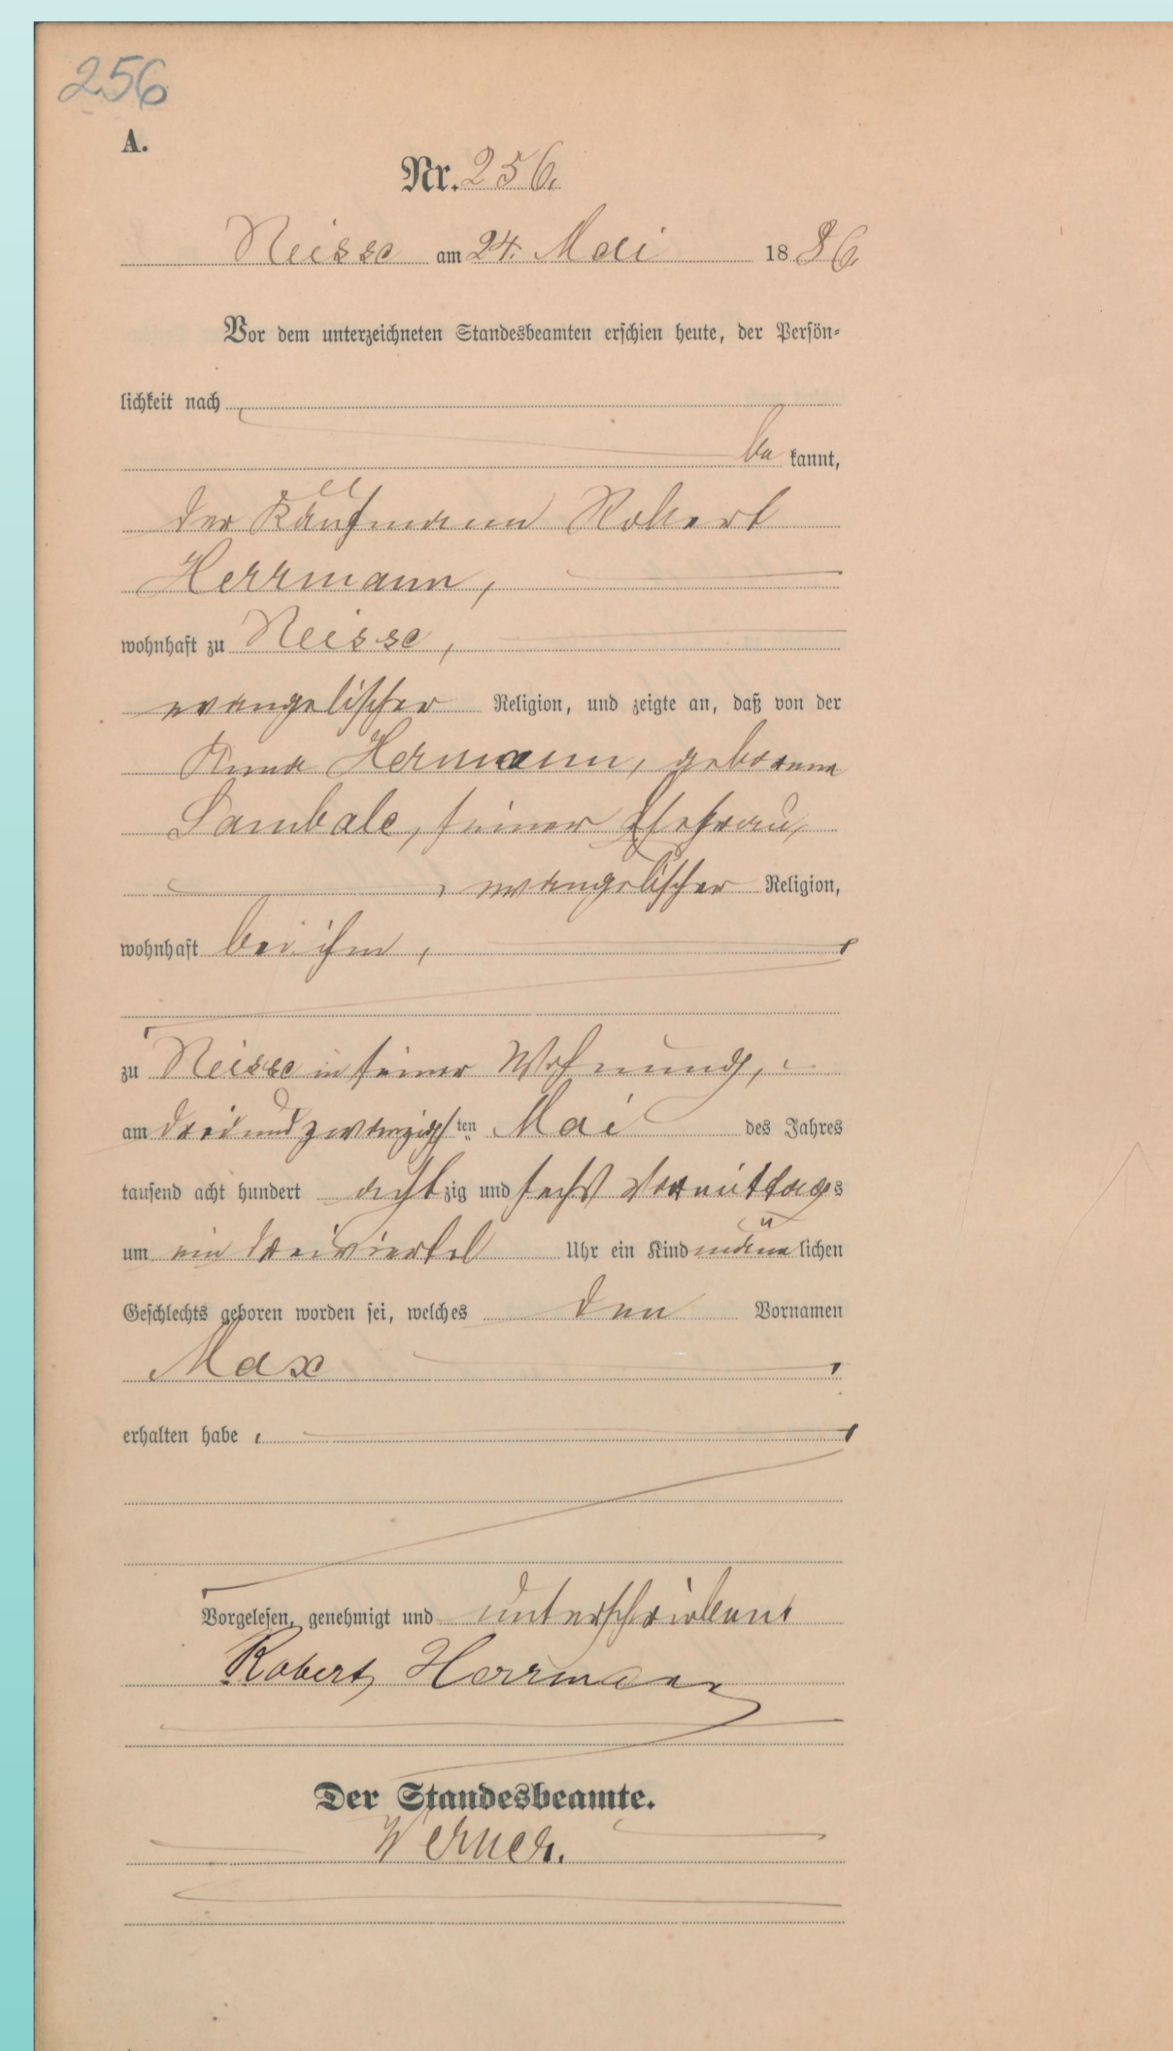 256
A.
Nr. 256.
Neisse am 24. Mai 1886.
Vor dem unterzeichneten Standesbeamten erschien heute, der Persön-
lichkeit nach
be kannt,
der Kaufmann Robert
Herrmann,
wohnhaft zu Neisse,
evangelischer Religion, und zeigte an, daß von der
Anna Herrmann, geborene
Sambale, seiner Ehefrau,
, evangelischer Religion,
wohnhaft bei ihm,
zu Neisse in seiner Wohnung,
am dreiundzwanzigsten Mai des Jahres
tausend acht hundert achtzig und sechs Vormittags
um ein dreiviertel Uhr ein Kind männlichen
Geschlechts geboren worden sei, welches den Vornamen
Max
erhalten habe.
Vorgelesen, genehmigt und unterschrieben:
Robert Herrmann
Der Standesbeamte.
Werner.